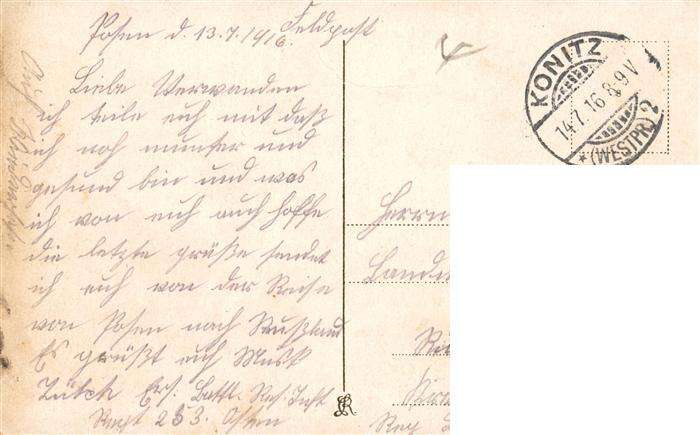 Posen d. 13.7.1916. Feldpost
Liebe Verwanden
ich teile euch mit daß
ich noh munter und
gesund bin und was
ich von euch auch hoffe
die letzte grüße sendet
ich euch von der Reise
von Posen nach Rußland
Es grüßt euch Musk
Ers. Battl. Res. Inft
Regt 253. Osten
Auf
KONITZ
14.7.16 8-9V
* (WESTPR.) 2
Herrn